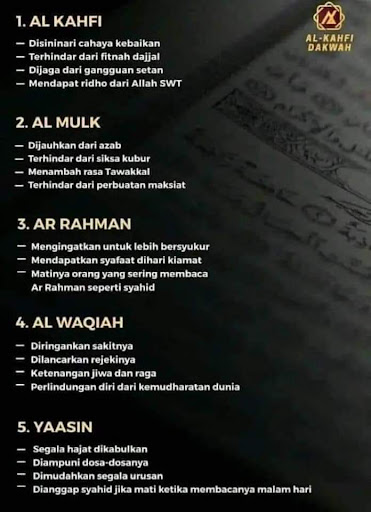 AL-KAHFI
DAKWAH
1. AL KAHFI
— Disininari cahaya kebaikan
— Terhindar dari fitnah dajjal
— Dijaga dari gangguan setan
— Mendapat ridho dari Allah SWT
2. AL MULK
— Dijauhkan dari azab
— Terhindar dari siksa kubur
— Menambah rasa Tawakkal
— Terhindar dari perbuatan maksiat
3. AR RAHMAN
— Mengingatkan untuk lebih bersyukur
— Mendapatkan syafaat dihari kiamat
— Matinya orang yang sering membaca
Ar Rahman seperti syahid
4. AL WAQIAH
— Diringankan sakitnya
— Dilancarkan rejekinya
— Ketenangan jiwa dan raga
— Perlindungan diri dari kemudharatan dunia
5. YAASIN
— Segala hajat dikabulkan
— Diampuni dosa-dosanya
— Dimudahkan segala urusan
— Dianggap syahid jika mati ketika membacanya malam hari